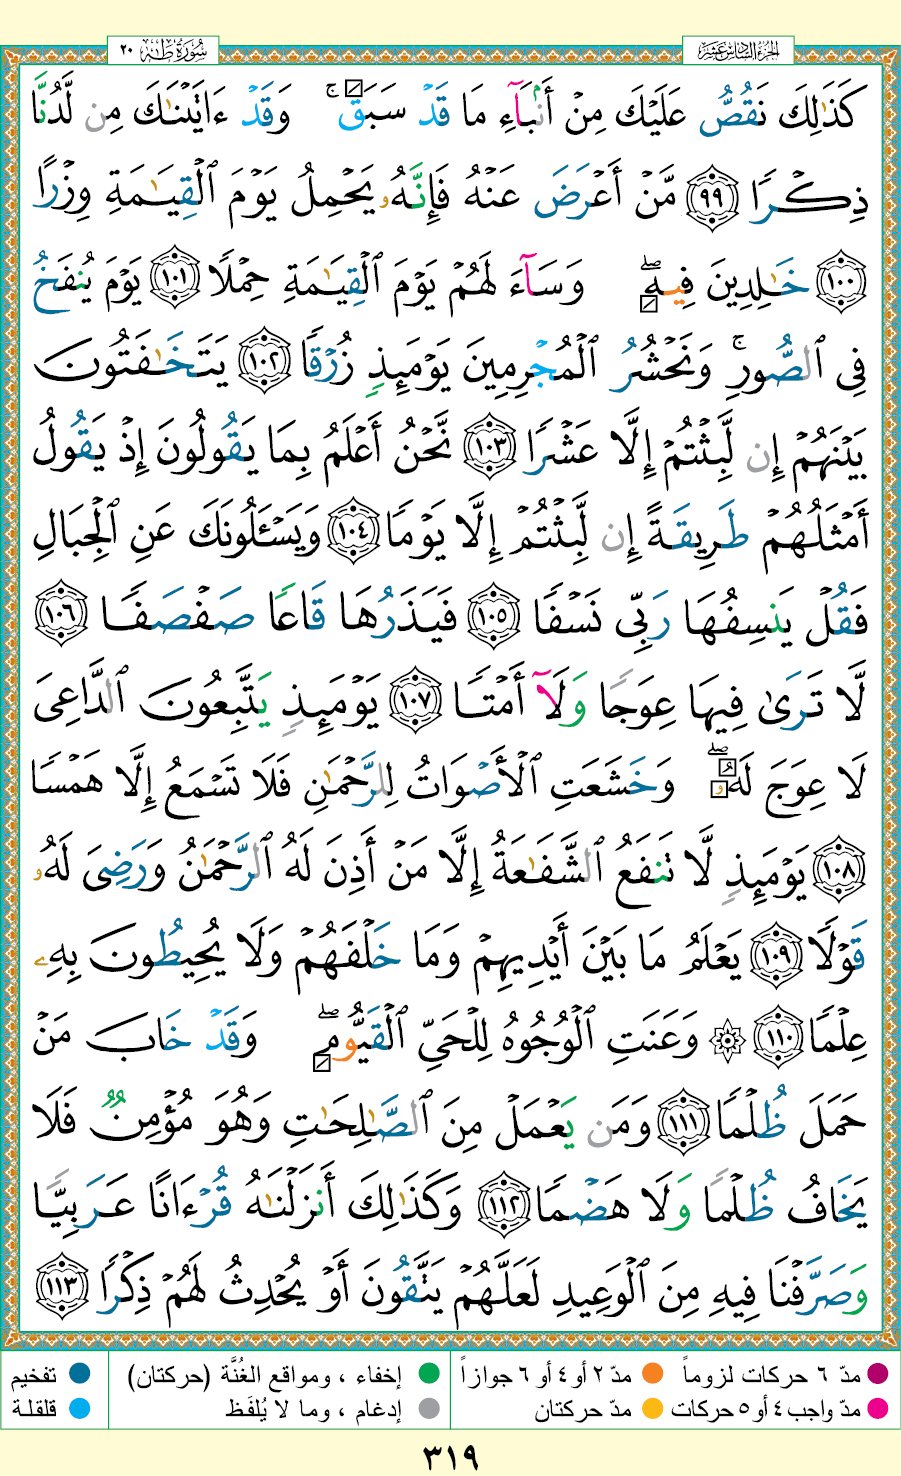 سُورَةُ طه ٢٠
الجزء السادس عشر
كَذَٰلِكَ نَقُصُّ عَلَيْكَ مِنْ أَنۢبَآءِ مَا قَدْ سَبَقَ ۚ وَقَدْ ءَاتَيْنَٰكَ مِن لَّدُنَّا
ذِكْرًا ٩٩ مَّنْ أَعْرَضَ عَنْهُ فَإِنَّهُۥ يَحْمِلُ يَوْمَ ٱلْقِيَٰمَةِ وِزْرًا
١٠٠ خَٰلِدِينَ فِيهِ ۖ وَسَآءَ لَهُمْ يَوْمَ ٱلْقِيَٰمَةِ حِمْلًا ١٠١ يَوْمَ يُنفَخُ
فِى ٱلصُّورِ ۚ وَنَحْشُرُ ٱلْمُجْرِمِينَ يَوْمَئِذٍ زُرْقًا ١٠٢ يَتَخَٰفَتُونَ
بَيْنَهُمْ إِن لَّبِثْتُمْ إِلَّا عَشْرًا ١٠٣ نَّحْنُ أَعْلَمُ بِمَا يَقُولُونَ إِذْ يَقُولُ
أَمْثَلُهُمْ طَرِيقَةً إِن لَّبِثْتُمْ إِلَّا يَوْمًا ١٠٤ وَيَسْـَٔلُونَكَ عَنِ ٱلْجِبَالِ
فَقُلْ يَنسِفُهَا رَبِّى نَسْفًا ١٠٥ فَيَذَرُهَا قَاعًا صَفْصَفًا ١٠٦
لَّا تَرَىٰ فِيهَا عِوَجًا وَلَآ أَمْتًا ١٠٧ يَوْمَئِذٍ يَتَّبِعُونَ ٱلدَّاعِىَ
لَا عِوَجَ لَهُۥ ۖ وَخَشَعَتِ ٱلْأَصْوَاتُ لِلرَّحْمَٰنِ فَلَا تَسْمَعُ إِلَّا هَمْسًا
١٠٨ يَوْمَئِذٍ لَّا تَنفَعُ ٱلشَّفَٰعَةُ إِلَّا مَنْ أَذِنَ لَهُ ٱلرَّحْمَٰنُ وَرَضِىَ لَهُۥ
قَوْلًا ١٠٩ يَعْلَمُ مَا بَيْنَ أَيْدِيهِمْ وَمَا خَلْفَهُمْ وَلَا يُحِيطُونَ بِهِۦ
عِلْمًا ١١٠ ۞ وَعَنَتِ ٱلْوُجُوهُ لِلْحَىِّ ٱلْقَيُّومِ ۖ وَقَدْ خَابَ مَنْ
حَمَلَ ظُلْمًا ١١١ وَمَن يَعْمَلْ مِنَ ٱلصَّٰلِحَٰتِ وَهُوَ مُؤْمِنٌ فَلَا
يَخَافُ ظُلْمًا وَلَا هَضْمًا ١١٢ وَكَذَٰلِكَ أَنزَلْنَٰهُ قُرْءَانًا عَرَبِيًّا
وَصَرَّفْنَا فِيهِ مِنَ ٱلْوَعِيدِ لَعَلَّهُمْ يَتَّقُونَ أَوْ يُحْدِثُ لَهُمْ ذِكْرًا ١١٣
مدّ ٦ حركات لزوماً مدّ ٢ أو ٤ أو ٦ جوازاً إخفاء ، ومواقع الغُنَّة (حركتان) تفخيم
مدّ واجب ٤ أو ٥ حركات مدّ حركتان إدغام ، وما لا يُلفَظ قلقلة
٣١٩